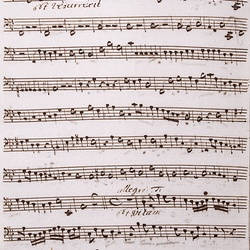 et resurrexit
allegro
et vitam